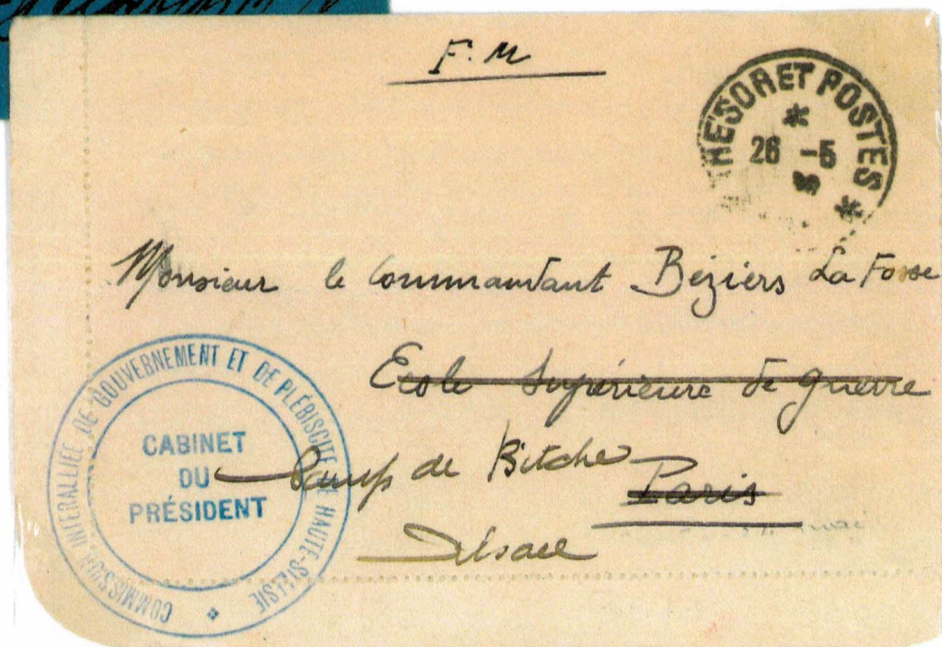 F.M
THESOR ET POSTES
*
26 -5
*
Monsieur le Commandant Béziers La Fosse
Ecole Supérieure de guerre
Camp de Bitche
Paris
Alsace
COMMISSION INTERALLIÉE DE GOUVERNEMENT ET DE PLÉBISCITE DE HAUTE-SILÉSIE
CABINET
DU
PRÉSIDENT